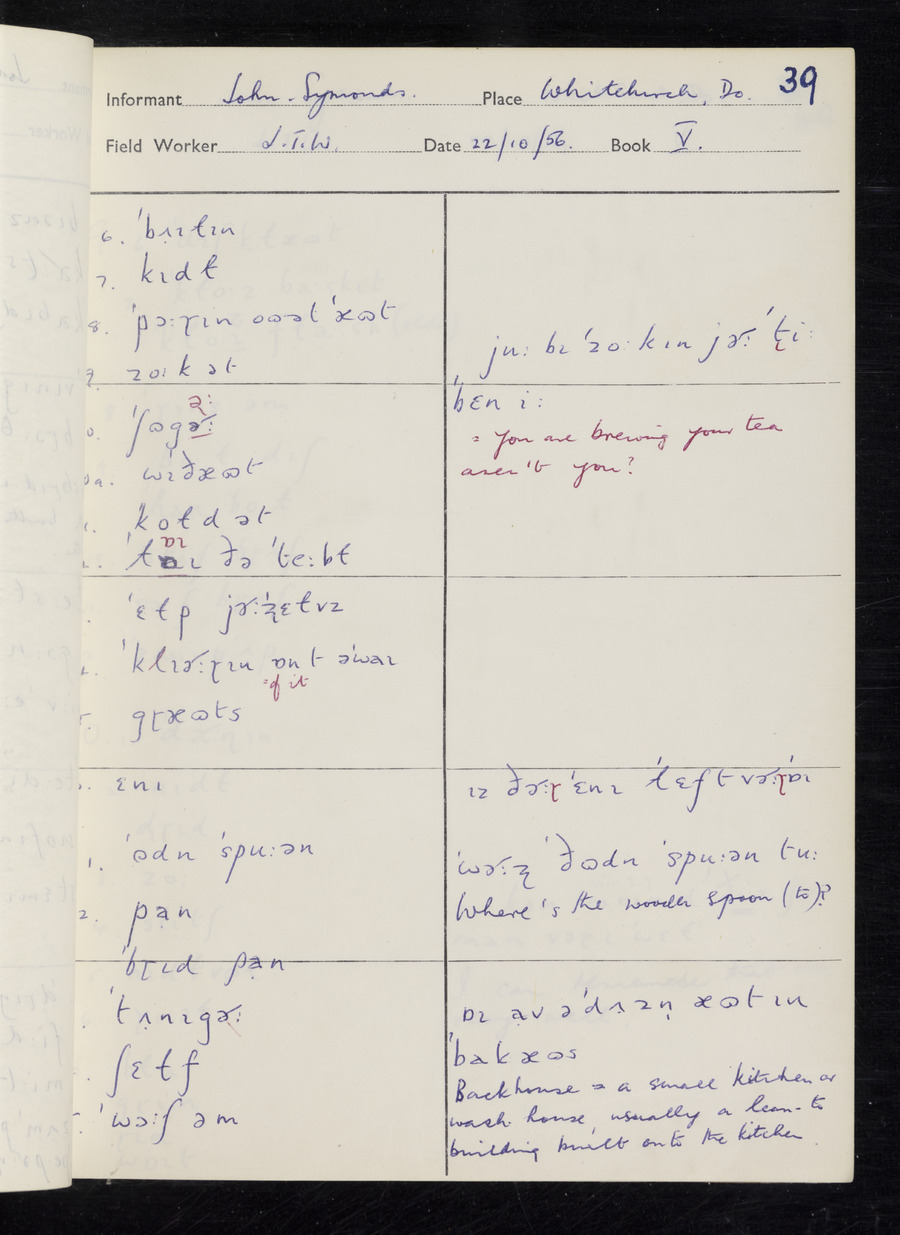 39
Informant John Symonds. Place Whitchurch, Do.
Field Worker J.T.W. Date 22/10/56. Book V.
6. ˈbʌɪtɪn
7. kɪdt
8. ˈpɔːɽɪn owət ˈæʊt
zoːkət
juː bɪ ˈzoːkɪn jəː ˈtiː
ˈbɛn iː
= you are brewing your tea
aren't you?
ʃʊgəː
əː
wɪˈðæʊt
ˈkotdət
ɒɪ
ˈtɒɪ ðə ˈteːbt
ˈɛtp jəːˈzɛtvz
ˈklɪəːɽɪn ɒnt əˈwaɪ
= of it
gɽæʊts
ɛnɪ
ɪz ðəːɽ ˈɛnɪ ˈtɛft vəːɽˈɒɪ
1. ˈʊdn ˈspuːən
ˈwəːz ˈðʊdn ˈspuːən tuː
Where's the wooden spoon (to)?
2. pan
ˈbɽɪd pan
ˈtʌnɪgəː
ɒɪ av əˈdʌzn æʊt ɪn
ˈbakæʊs
ʃɛtf
ˈwɔːʃ əm
Backhouse = a small kitchen or
wash-house, usually a lean-to
building built onto the kitchen.